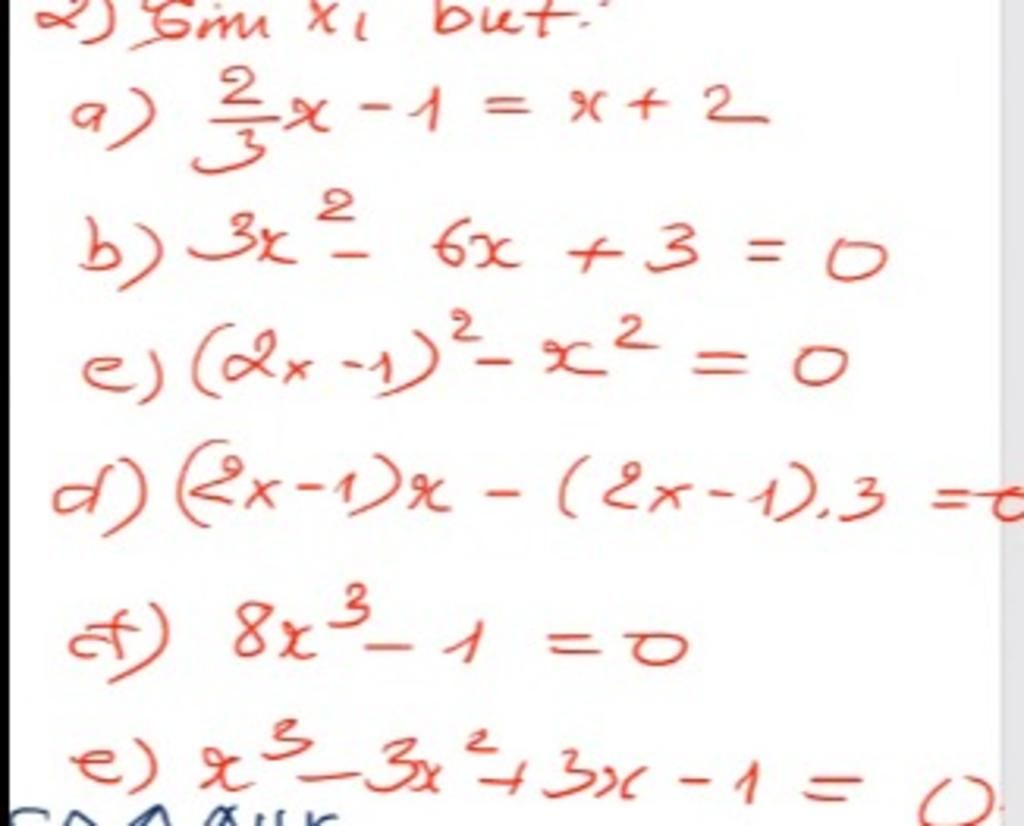 2) Tìm x, biết:
a) 2/3 x - 1 = x + 2
b) 3x² - 6x + 3 = 0
c) (2x - 1)² - x² = 0
d) (2x - 1)x - (2x - 1).3 = 0
đ) 8x³ - 1 = 0
e) x³ - 3x² + 3x - 1 = 0